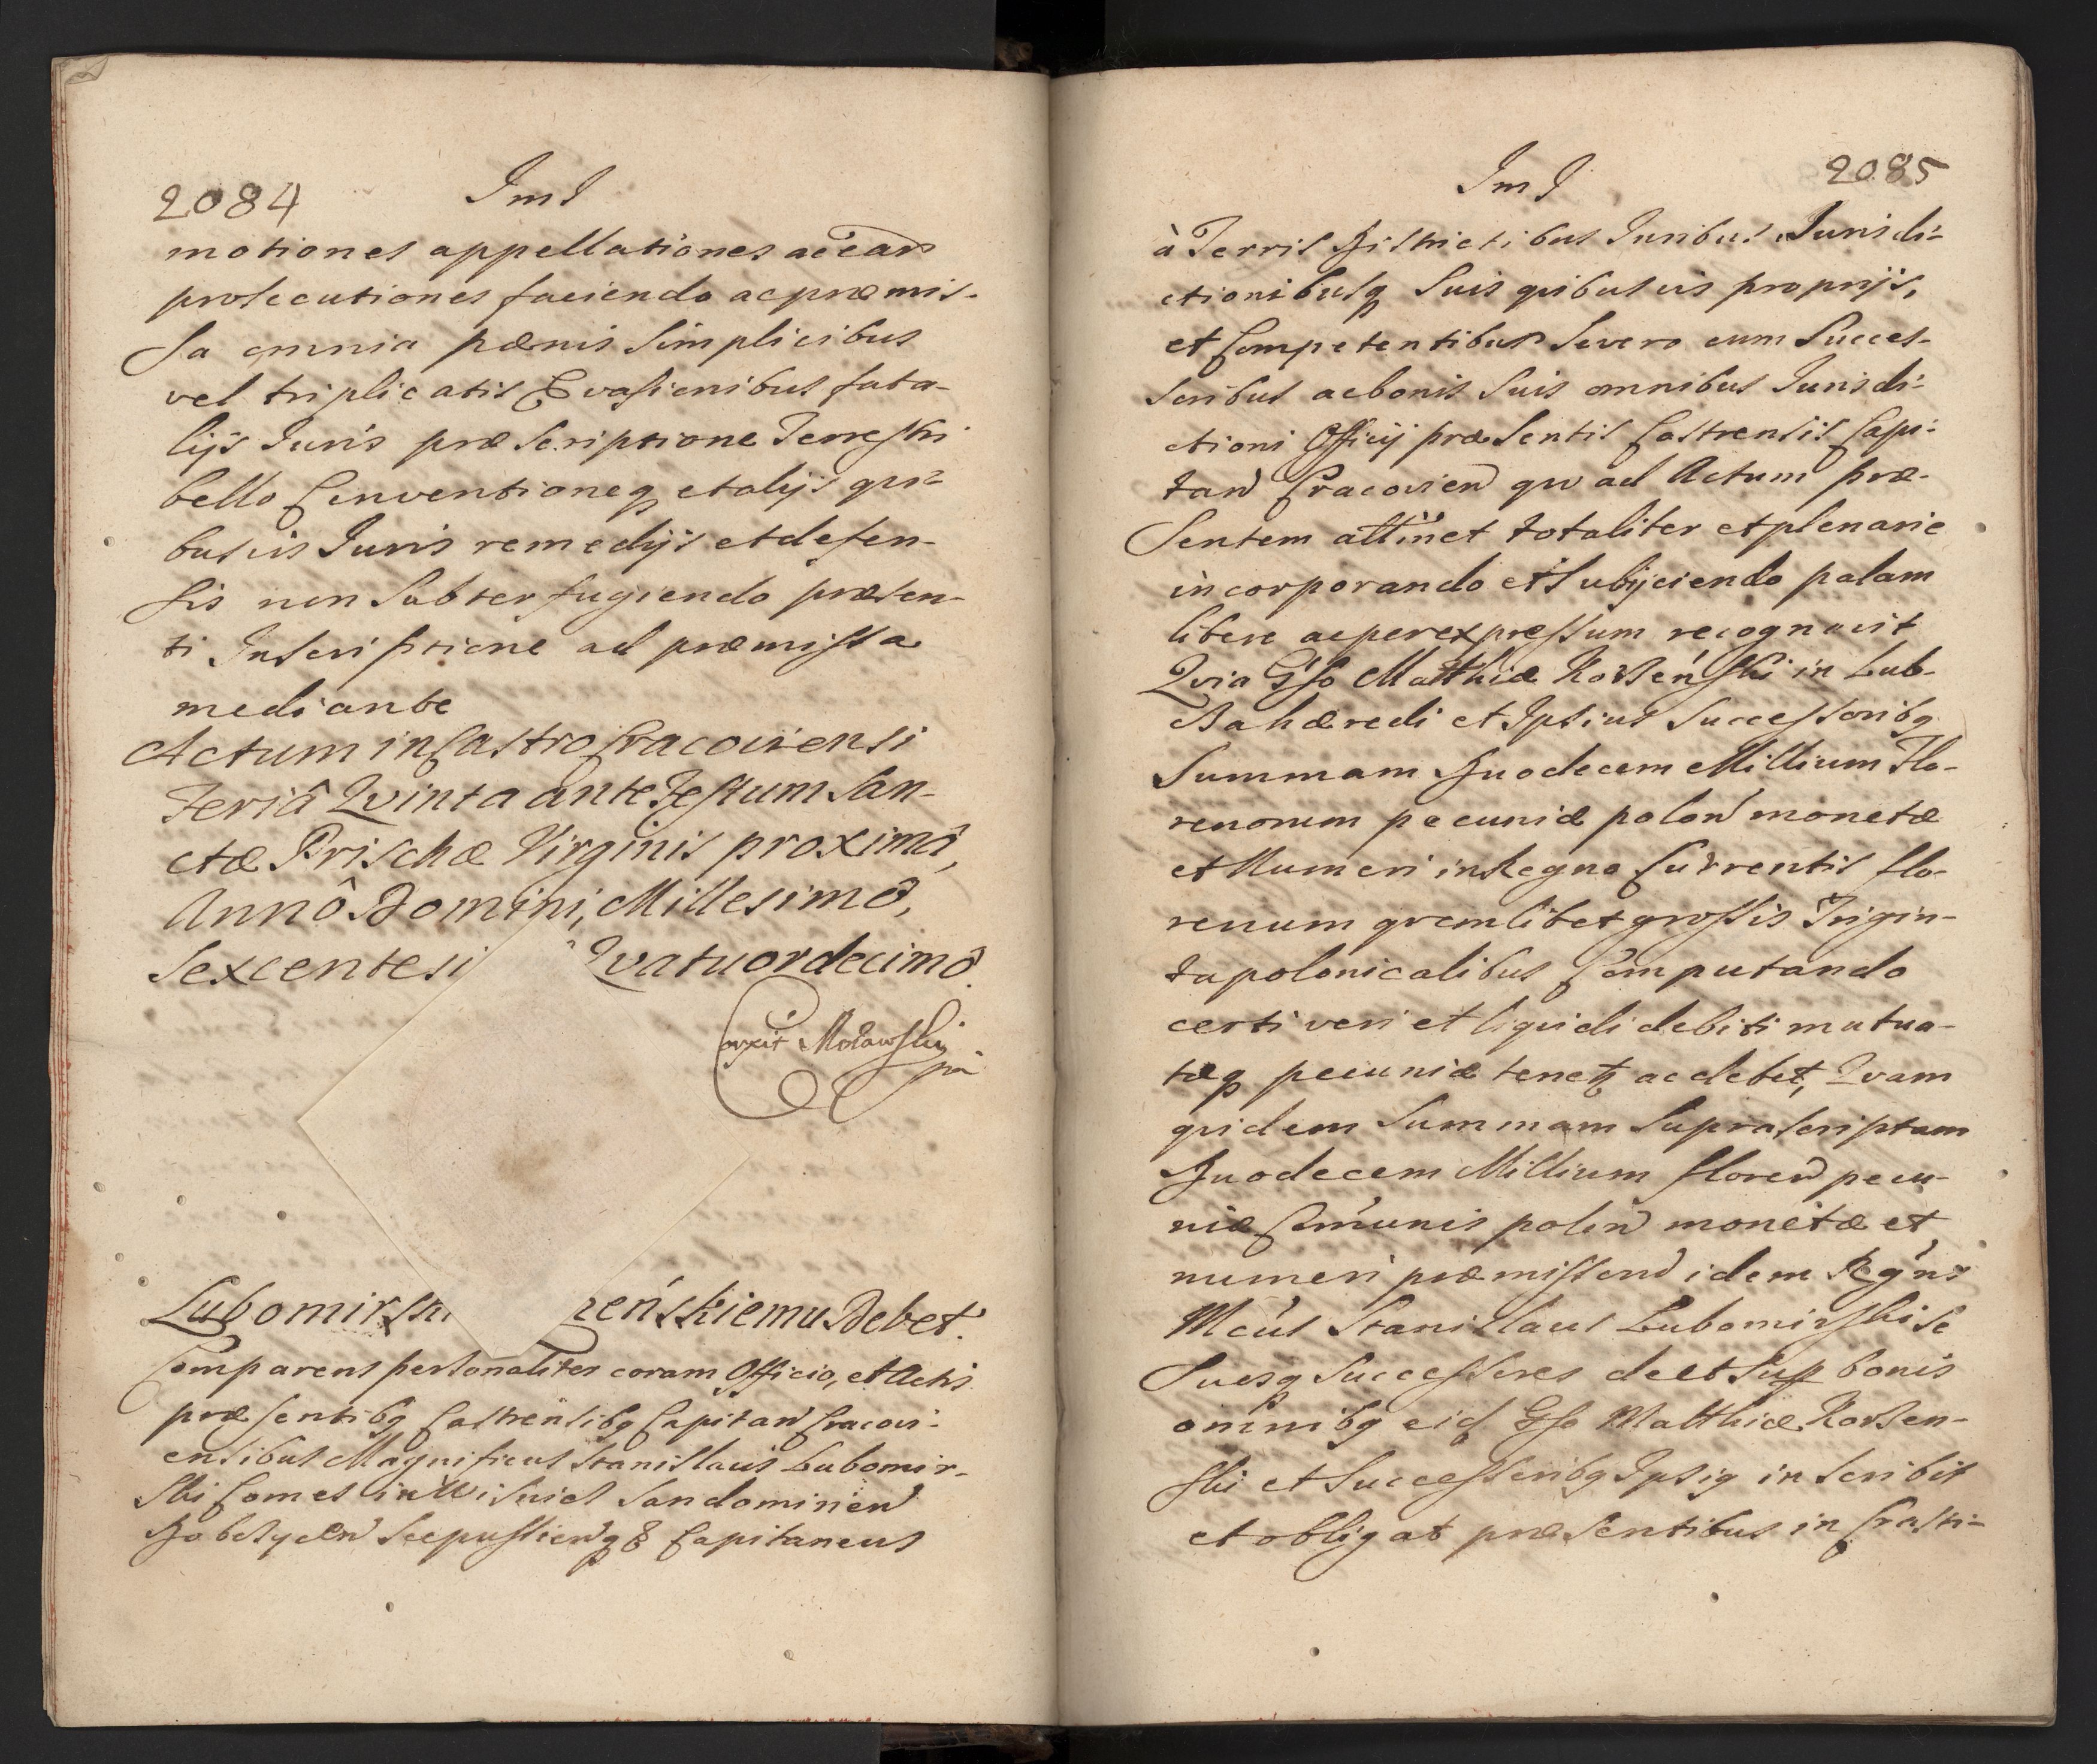 2084 Im I
motiones appellationes ac ear
prosecutiones faciendo ac præmis-
sa omnia pœnis simplicibus
vel triplicatis Evasionibus fata-
lijs Juris præscriptione Terrestri
bello Conventioneq et alijs qui-
busvis Juris remedijs et defen-
sis non subterfugiendo præsen-
ti Inscriptione ad præmissa
mediante
Actum in Castro Cracoviensi
Feriâ Qvinta ante Festum San-
ctæ Prischæ Virginis proximâ,
Annô Domini, Millesimô,
Sexcentesi Qvatuordecimô.
Correxit Morawski
mp
Lubomirski reńskiemu Debet.
Comparens personaliter coram Officio, et Actis
præsentibq Castrensibq Capitan Cracovi-
ensibus Magnificus Stanislaus Lubomir-
ski Comes in Wisnicz Sandomirien
Dobczycen Scepusien q& Capitaneus
Im I 2085
à Terris Districtibus Juribus Jurisdi-
ctionibusq Suis quibusvis proprijs,
et Competentibus Severo cum Succes-
soribus ac bonis Suis omnibus Jurisdi-
ctioni Officij præsentis Castrensis Capi-
tan Cracovien qv ad Actum præ-
sentem attinet totaliter et plenarie
incorporando et Subijciendo palam
libere ac per expressum recognovit
Qvia Gsso Matthiæ Korzeński in Lub-
cza hæredi et Ipsius Successoribq
Summam Duodecem Millium Flo-
renorum pecuniæ polon monetæ
et Numeri in Regno Currentis flo-
renum qvemlibet grossis Trigin-
ta polonicalibus Computando
certi veri et liquidi debiti mutua-
tæq pecuniæ tenetz ac debet, Qvam
qvidem Summam Suprascriptam
Duodecem Millium floren pecu-
niæ Cōmunis polon monetæ et
numeri præmissorn idem Rg̃ns
Mcus Stanislaus Lubomirski se
Suosq Successores de et Sup bonis
omnibq eid Gsso Matthiæ Korzen-
ski et Successoribq Ipsiq inscribit
et obligat præsentibus in Crasti-